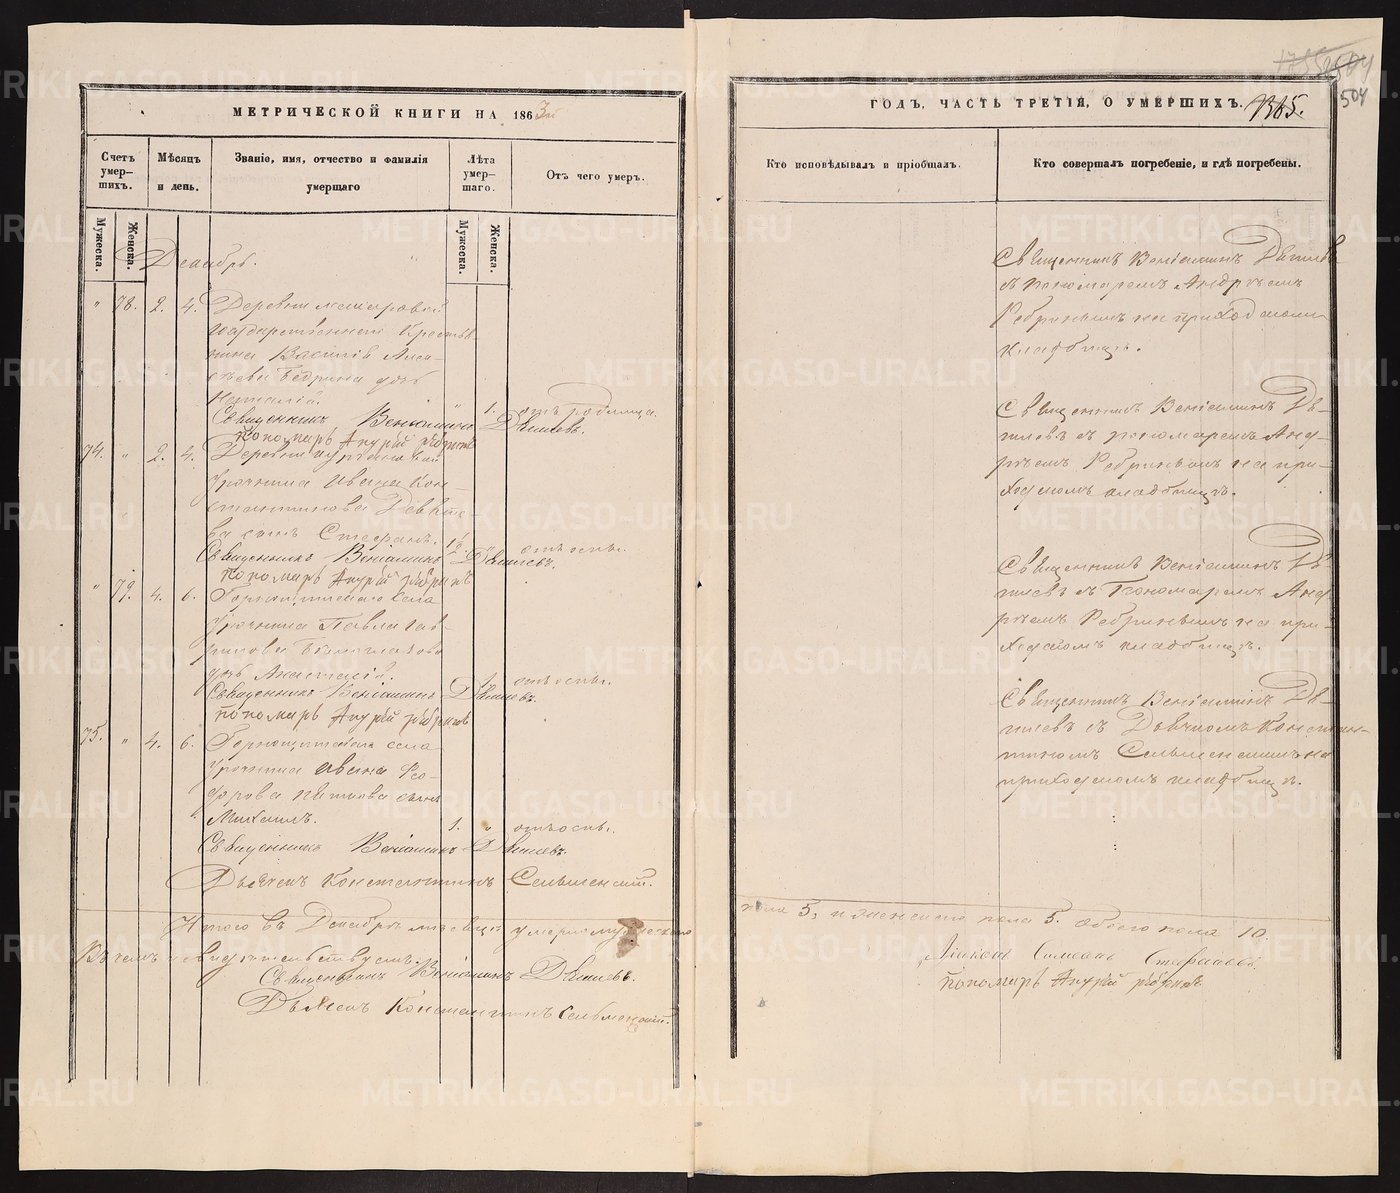 МЕТРИЧЕСКОЙ КНИГИ НА 1863й
Счетъ умер-
шихъ.
Мужеска.
Женска.
Мѣсяцъ
и день.
Званіе, имя, отчество и фамилія
умершаго
Лѣта
умер-
шаго.
Мужеска.
Женска.
Отъ чего умеръ.
Декабрь.
" 78. 2. 4. Деревни
государственнаго крестья
нина Василія Алек-
сѣева Бедрина дочь
Наталія. " 1. отъ родимца.
Священникъ Веніаминъ Дягилевъ.
Пономарь Андрей Ребринъ
74. " 2. 4. Деревни
урочника Ивана Кон-
стантинова Девяте-
ва сынъ Стефанъ. 1½ " отъ оспы.
Священникъ Веніаминъ Дягилевъ.
Пономарь Андрей Ребринъ
" 79. 4. 6. Горнощитскаго села
урочника Павла Гав-
рилова
дочь Анастасія. 1 отъ оспы.
Священникъ Веніаминъ Дягилевъ.
Пономарь Андрей Ребринъ
75. " 4. 6. Горнощитскаго села
урочника Ивана Ѳео-
дорова сынъ
Михаилъ. 1. " отъ оспы.
Священникъ Веніаминъ Дягилевъ.
Дьячекъ Константинъ Сельменскій.
Итого въ Декабрѣ мѣсяцѣ умерло мужескаго
Въ чемъ и свидѣтельствуемъ
Священникъ Веніаминъ Дягилевъ.
Дьячекъ Константинъ Сельменскій.
504
504
ГОДЪ, ЧАСТЬ ТРЕТІЯ, О УМЕРШИХЪ. 1365.
Кто исповѣдывалъ и пріобщалъ.
Кто совершалъ погребеніе, и гдѣ погребены.
Священникъ Веніаминъ Дягилевъ
съ пономаремъ Андреемъ
Ребринымъ на приходскомъ
кладбищѣ.
Священникъ Веніаминъ Дя-
гилевъ съ пономаремъ Анд-
реемъ Ребринымъ на при-
ходскомъ кладбищѣ.
Священникъ Веніаминъ Дя-
гилевъ съ Пономаремъ Анд
реемъ Ребринымъ на при-
ходскомъ кладбищѣ.
Священникъ Веніаминъ Дя-
гилевъ съ Дьячкомъ Констан-
тиномъ Сельменскимъ на
приходскомъ кладбищѣ.
пола 5, и женскаго пола 5. Обоего пола 10.
Діаконъ Симеонъ Стефановъ.
Пономарь Андрей Ребринъ
METRIKI.GASO-URAL.RU